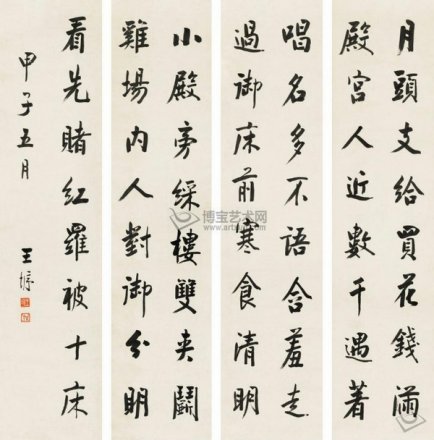 月頭支給買花錢滿
殿宮人近數千遇著
唱名多不語含羞走
過御床前寒食清明
小殿旁綵樓雙夾鬭
雞場內人對御分明
看先賭紅羅被十床
甲子五月
王
博宝艺术网